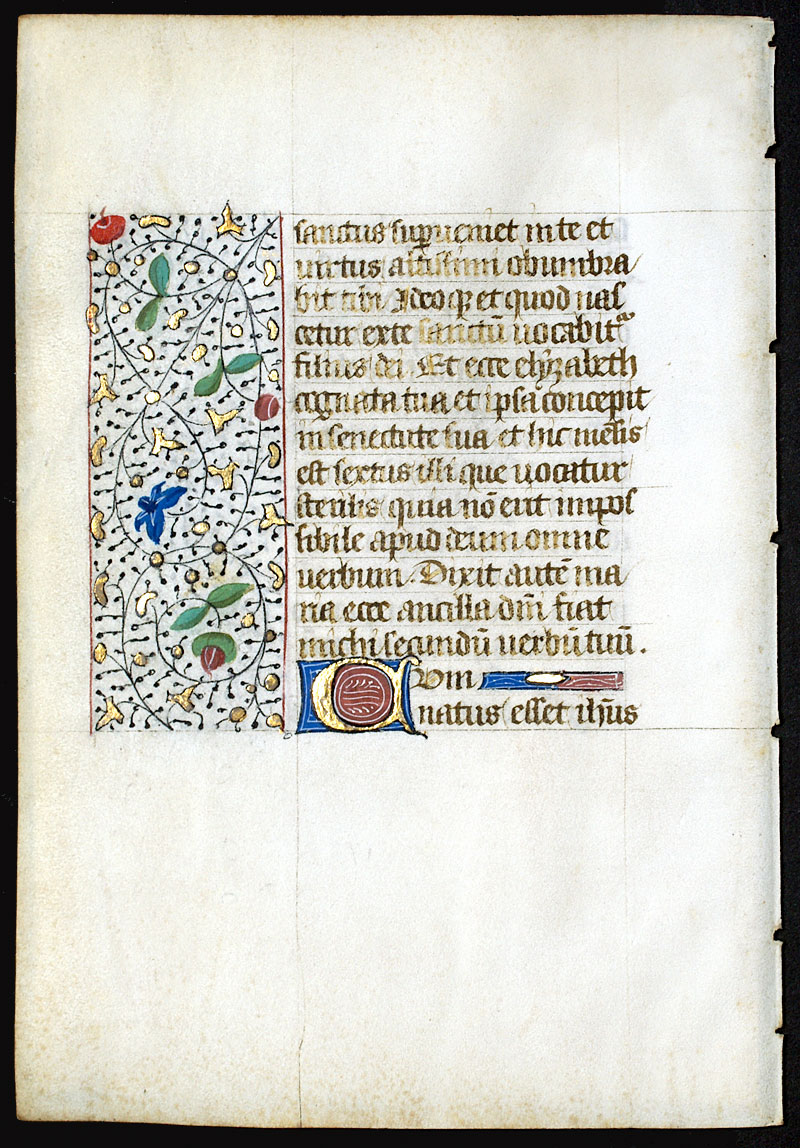 sanctus sup̱ueniet in te et
uirtus altissimi obumbra
bit tibi Ideoqꝫ et quod nas
cetur exte sanctū uocabitᷣ
filius dei Et ecce elyzabeth
cognata tua et ipsa concepit
in senectute sua et hic mēsis
est sextus illi que uocatur
sterilis quia nō erit impos
sibile apud deum omne
uerbum. Dixit autē ma
ria ecce ancilla dn̄i fiat
michi secundū uerbū tuū.
Cum
natus esset ih̄us